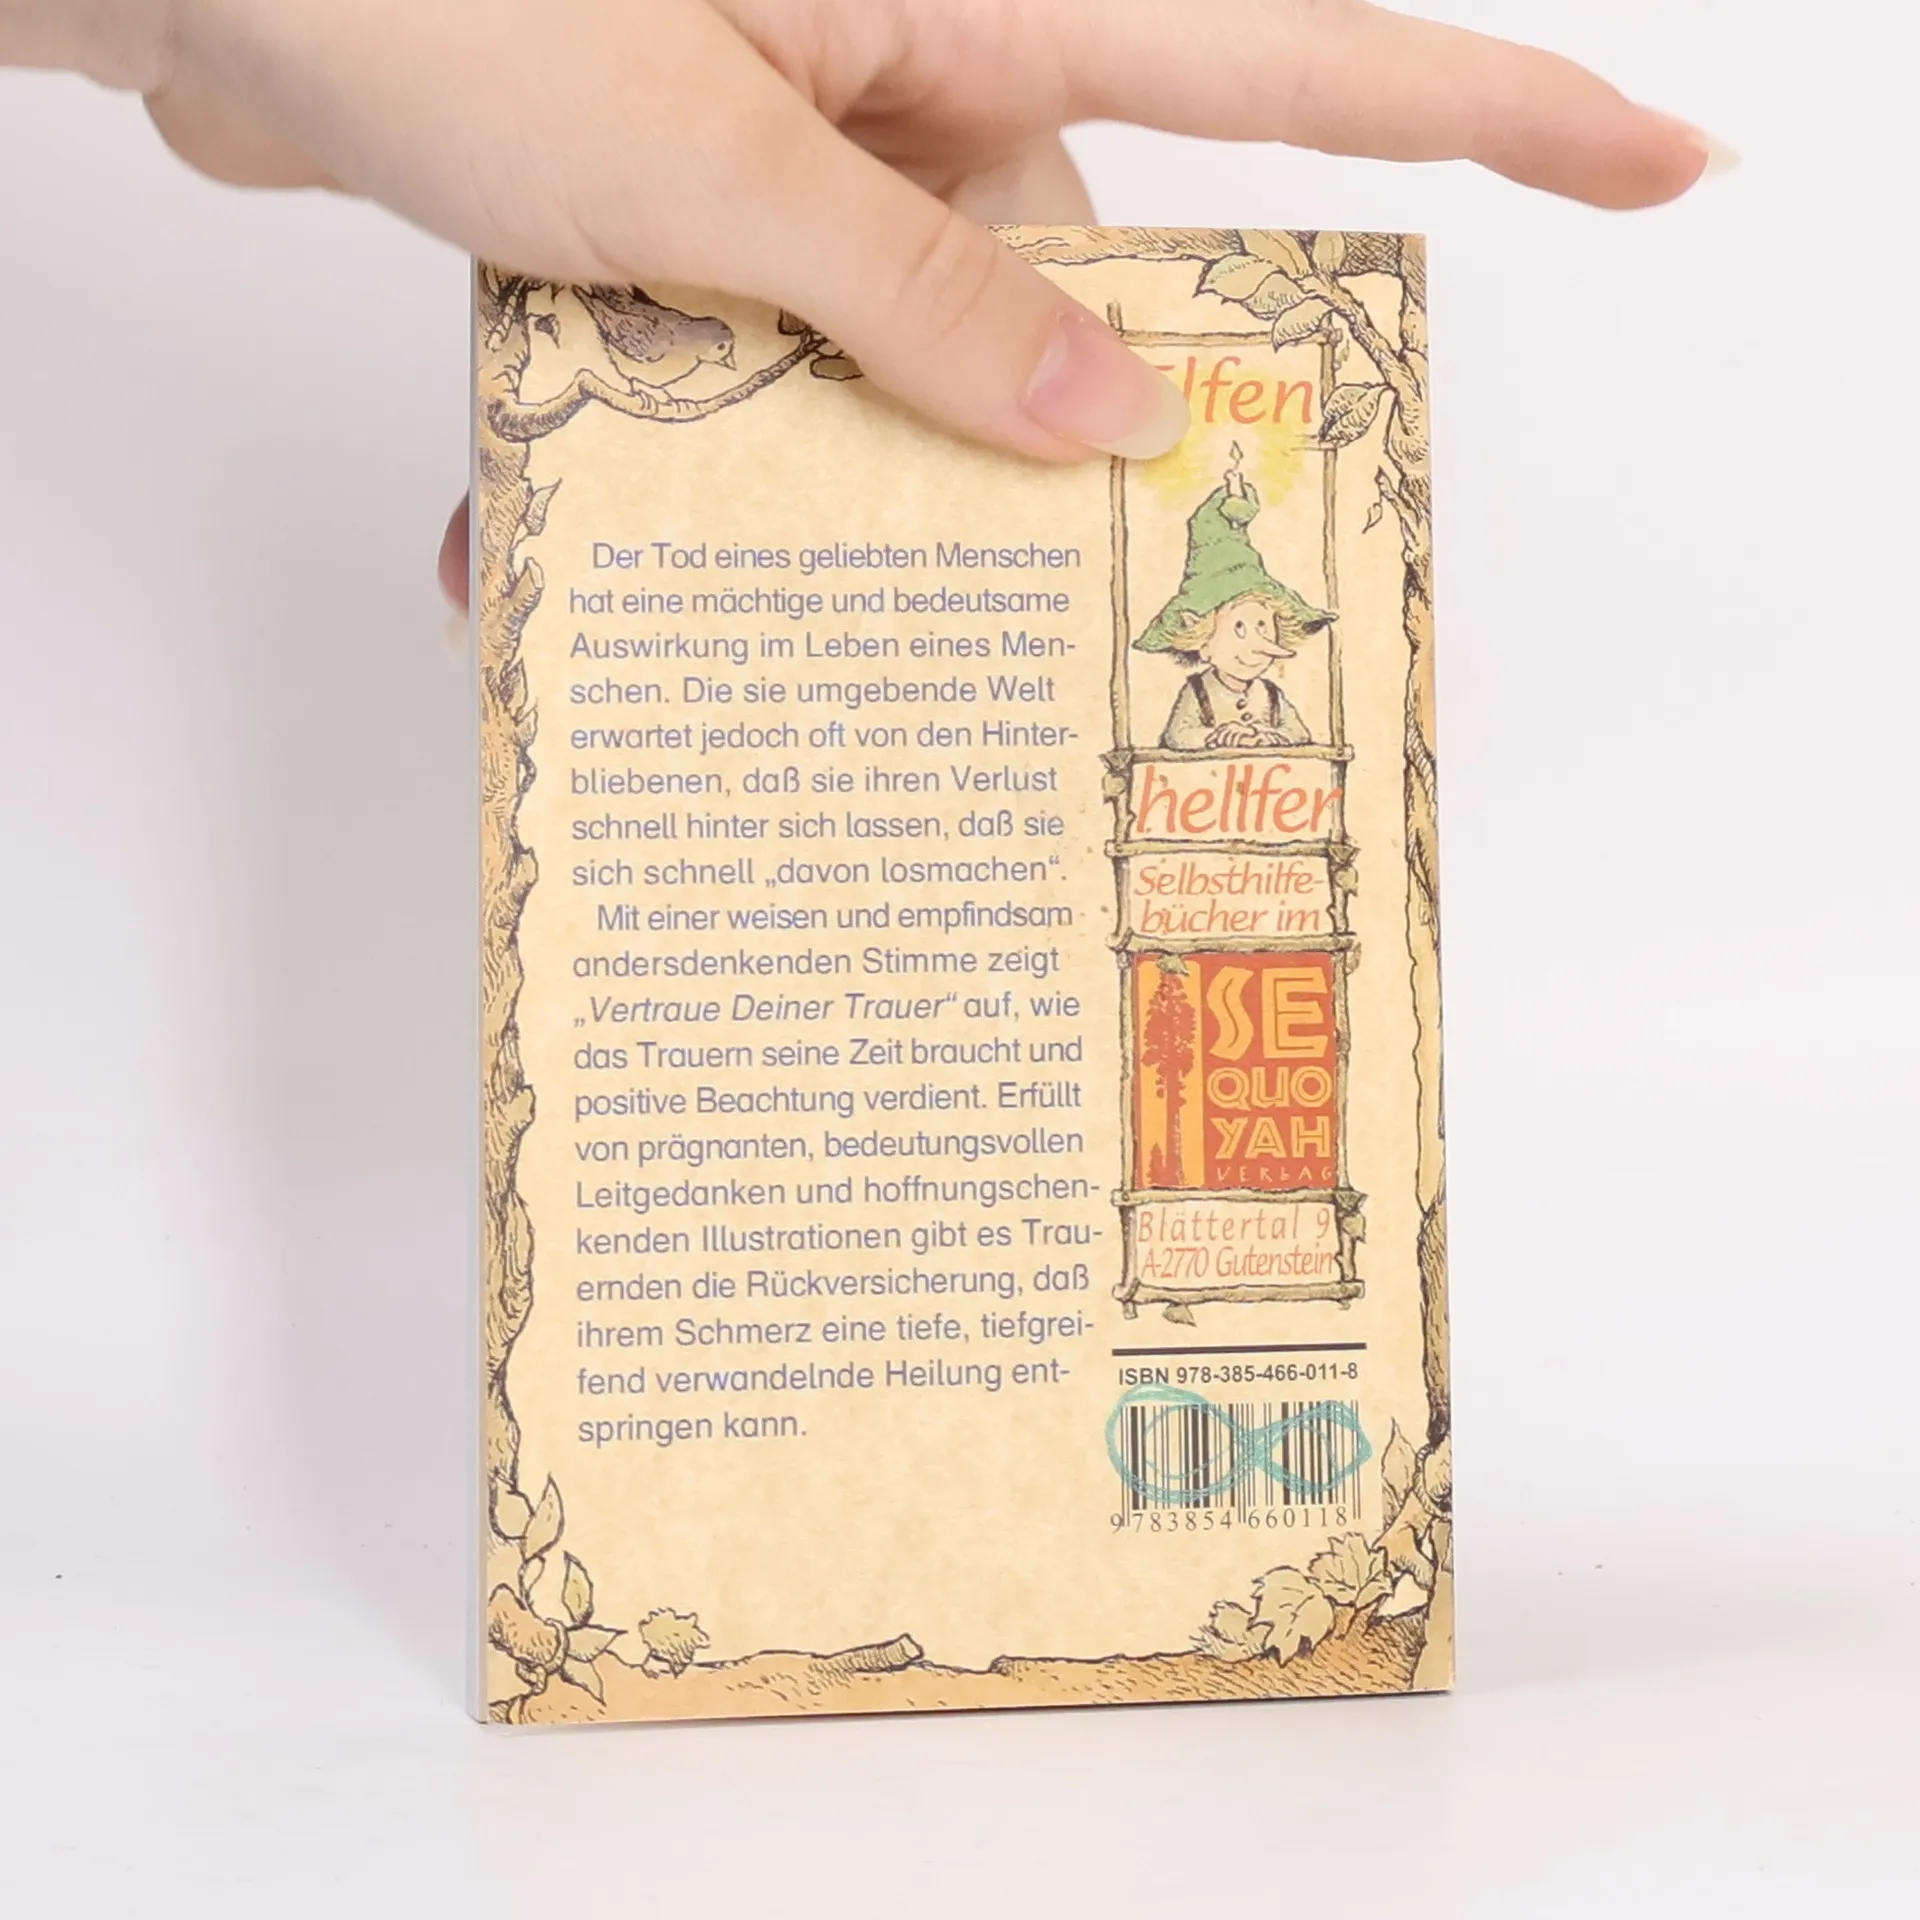 Der Tod eines geliebten Menschen
hat eine mächtige und bedeutsame
Auswirkung im Leben eines Men-
schen. Die sie umgebende Welt
erwartet jedoch oft von den Hinter-
bliebenen, daß sie ihren Verlust
schnell hinter sich lassen, daß sie
sich schnell „davon losmachen“.
Mit einer weisen und empfindsam
andersdenkenden Stimme zeigt
„Vertraue Deiner Trauer“ auf, wie
das Trauern seine Zeit braucht und
positive Beachtung verdient. Erfüllt
von prägnanten, bedeutungsvollen
Leitgedanken und hoffnungschen-
kenden Illustrationen gibt es Trau-
ernden die Rückversicherung, daß
ihrem Schmerz eine tiefe, tiefgrei-
fend verwandelnde Heilung ent-
springen kann.
hellfer
Selbsthilfe-
bücher im
SE
QUO
YAH
VERLAG
Blättertal 9
A-2770 Gutenstein
ISBN 978-385-466-011-8
9 783854 660118